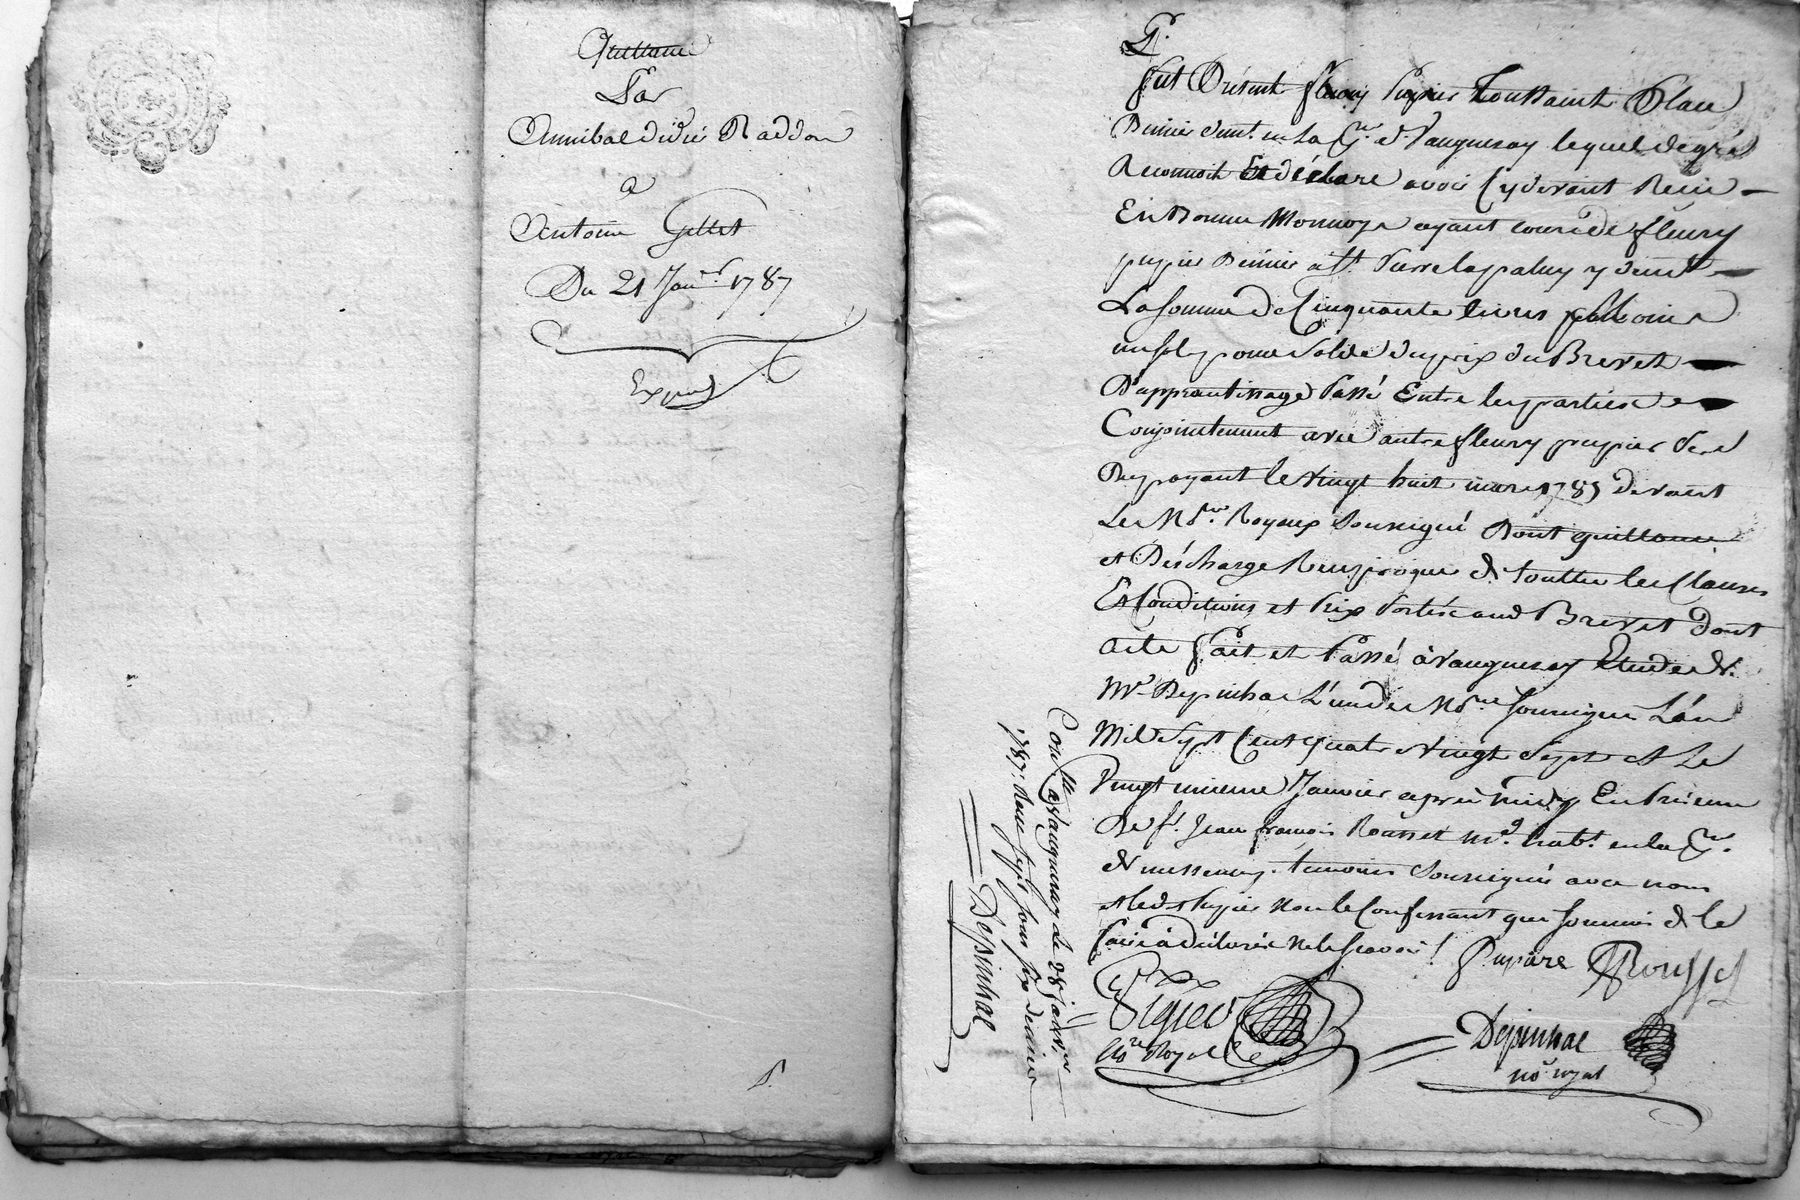 Quittance
Par
Annibal didier Raddon
a
Antoine Gillet
Du 21 Janer 1787
Exped
P.
Fut Présent fleury Pupier Toussaint
demt. en La pse. de Vaugneray lequel de gré
Reconnoit Et déclare avoir Cy devant Reçu
En Bonne Monnoye ayant cours de fleury
pupier St. y demt
La somme de Cinquante livres
pour Solde du prix du Brevet
D'apprentissage Passé Entre les parties
Conjointement avec autre fleury pupier Pere
Du payant le vingt huit mars 1785 devant
Les Nores. Royaux Soussigné Dont quittance
et Décharge Reciproque de touttes les Clauses
Et Conditions et Prix Portés aud Brevet Dont
acte fait et Passé à Vaugneray Etude de
Me. Depinhac L'un des Nores soussignés L'an
Mil Sept Cent quatre Vingt Sept et Le
Vingt unieme Janvier après midy En Présence
De sr. Jean francois Rousset md. habt. en la pse.
de messimy. temoins Soussignés avec nous
et led. Pupier Non le Confessant que sommé de le
faire à déclaré Ne le scavoir. Pupier Rousset
nore Royal Depinhac
nore royal
Conlle a Vaugneray Le 28 janvier
1787. Reçu sept sous six deniers
Depinhac